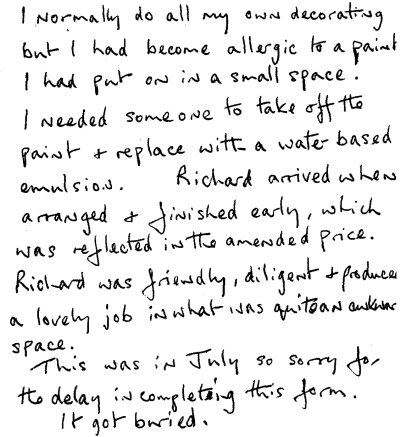 I normally do all my own decorating
but I had become allergic to a paint
I had put on in a small space.
I needed someone to take off the
paint + replace with a water based
emulsion. Richard arrived when
arranged + finished early, which
was reflected in the amended price.
Richard was friendly, diligent + produce
a lovely job in what was quite an awkwar
space.
This was in July so sorry for
the delay in completing this form.
It got buried.